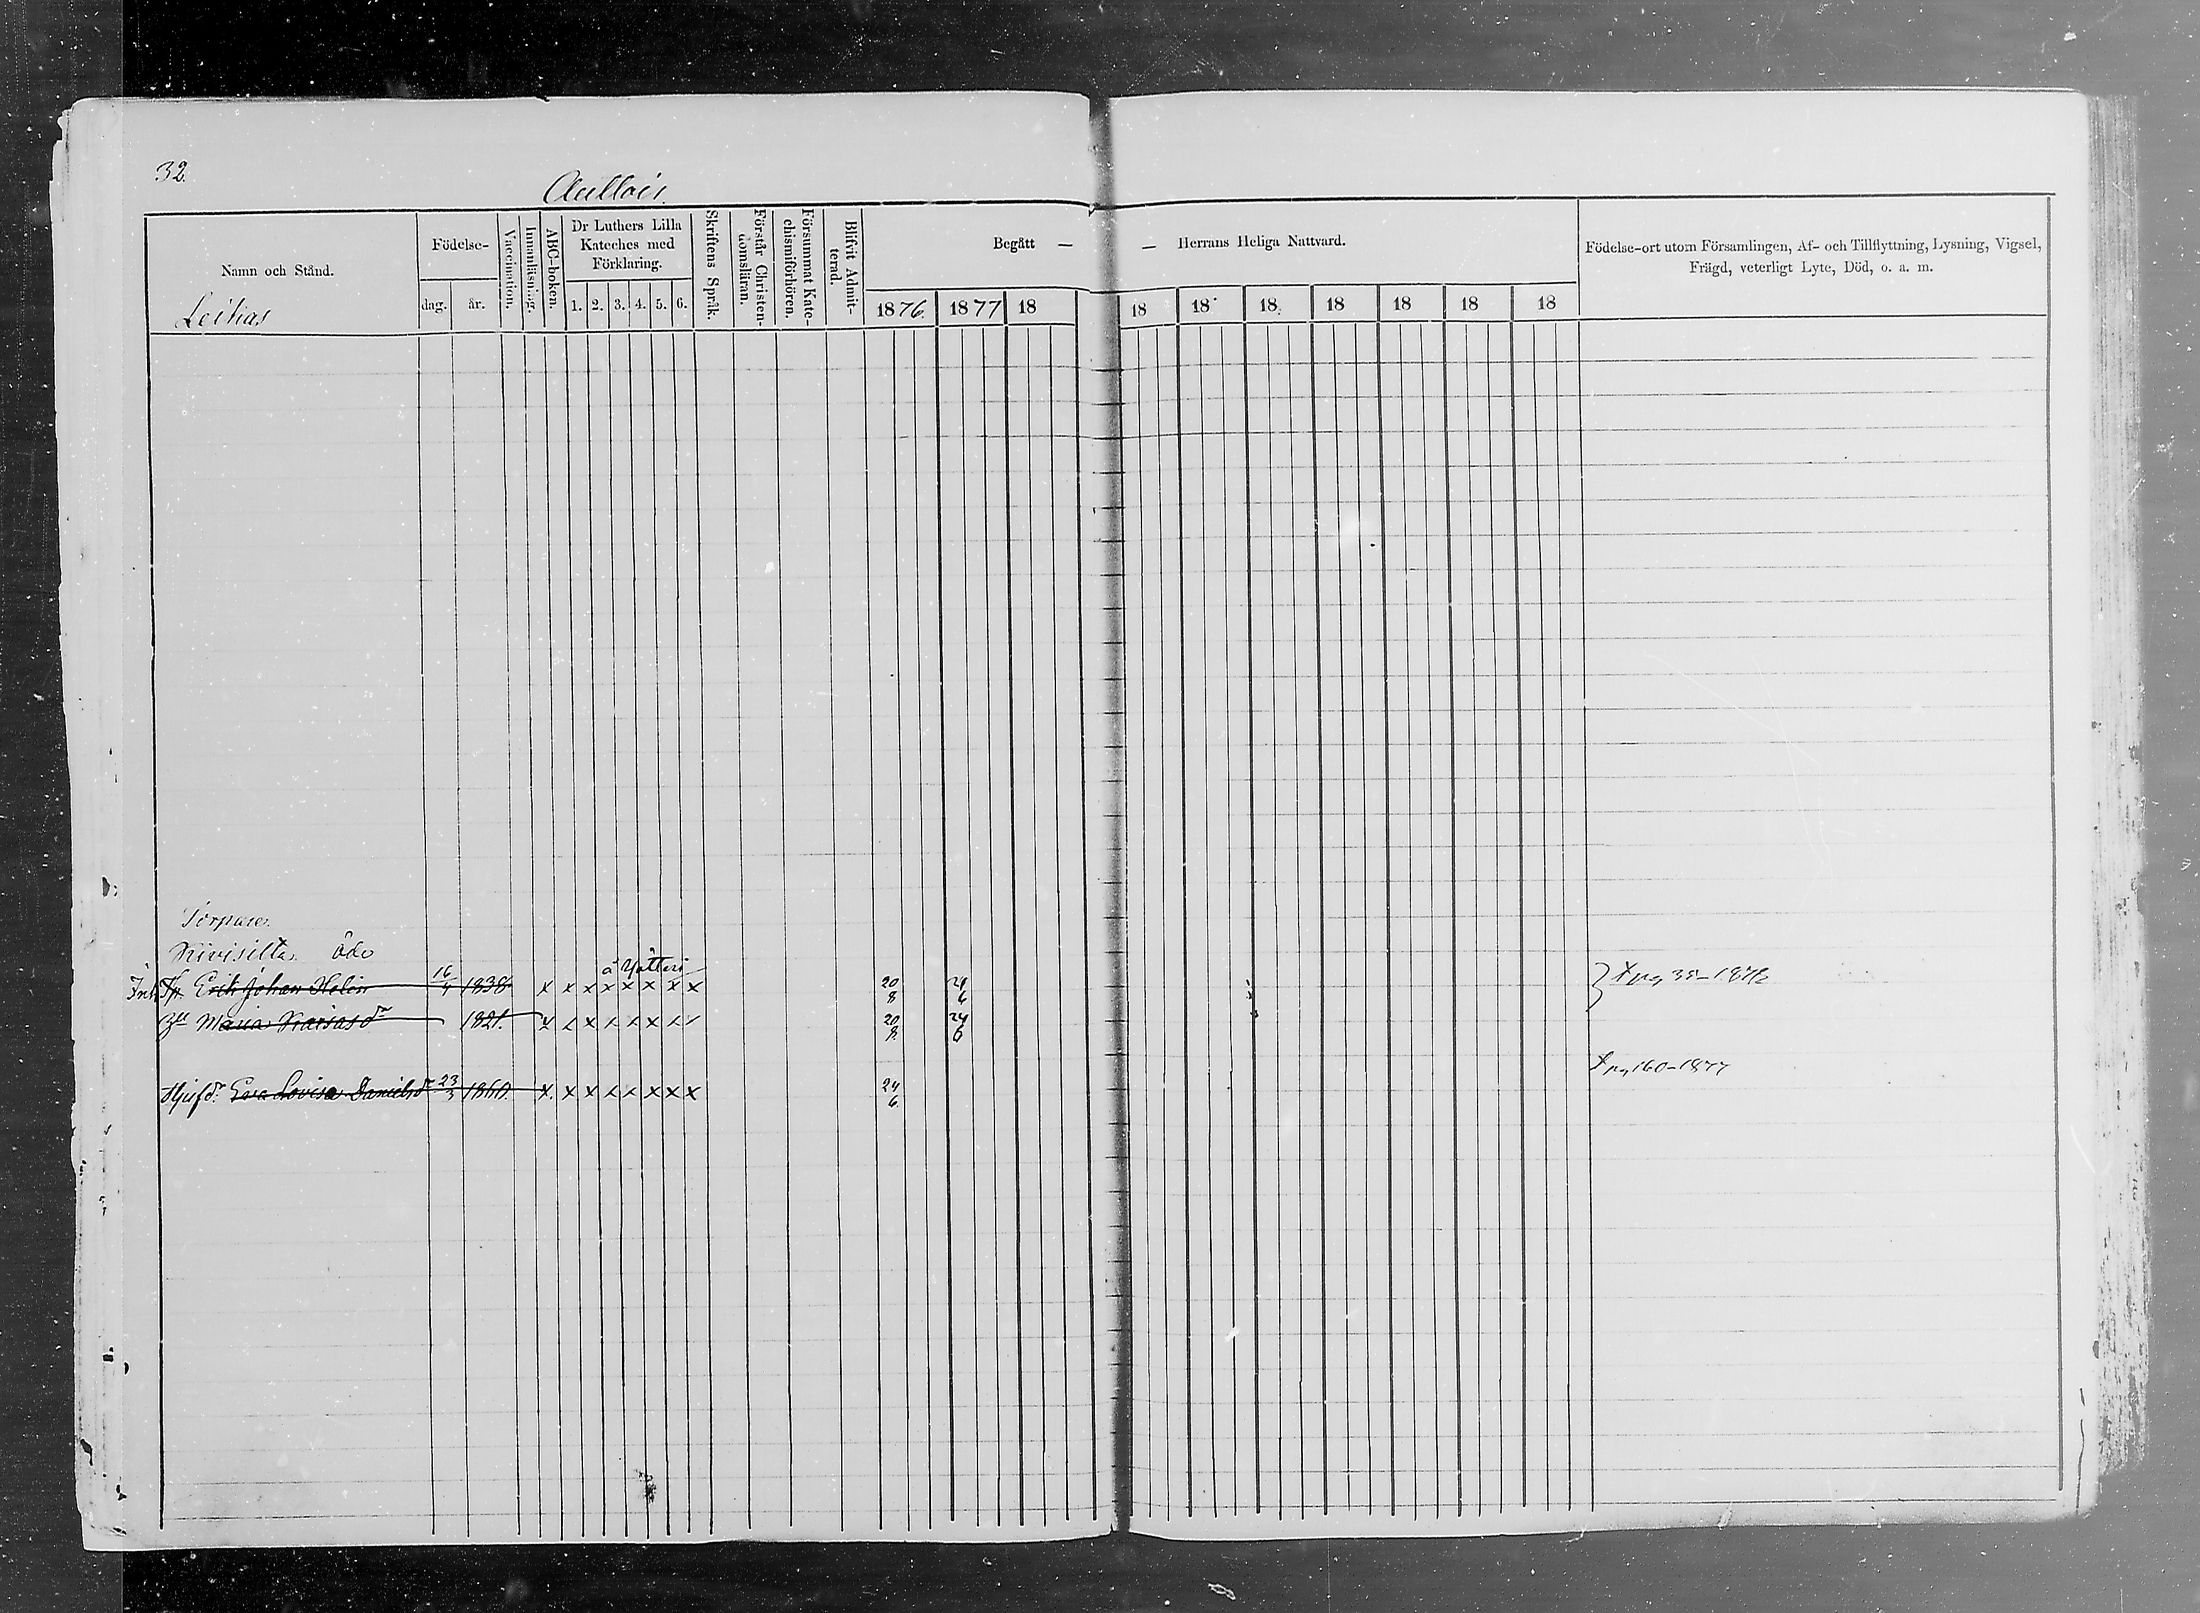 32.
Aullois.
Namn och Stånd.
Leikas
Födelse-
dag. år.
Vaccination.
Innanläsning.
ABC-boken.
Dr Luthers Lilla
Kateches med
Förklaring.
1. 2. 3. 4. 5. 6.
Skriftens Språk.
Förstår Christen-
domsläran.
Försummat Kate-
chismiförhören.
Blifvit Admit-
terad.
Begått — — Herrans Heliga Nattvard.
1876. 1877 18 18 18 18 18 18 18 18
Födelse-ort utom Församlingen, Af- och Tillflyttning, Lysning, Vigsel,
Frägd, veterligt Lyte, Död, o. a. m.
Torpare.
Kivisilta öde
Erik Johan Helin 16/4 1838 x x x x x x x x 20/8 24/6
Maria 1821. x x x x x x x x 20/8 24/6
Eva Lovisa Danielsdr 23/3 1860. x x x x x x x x 24/6
pg 160-1877